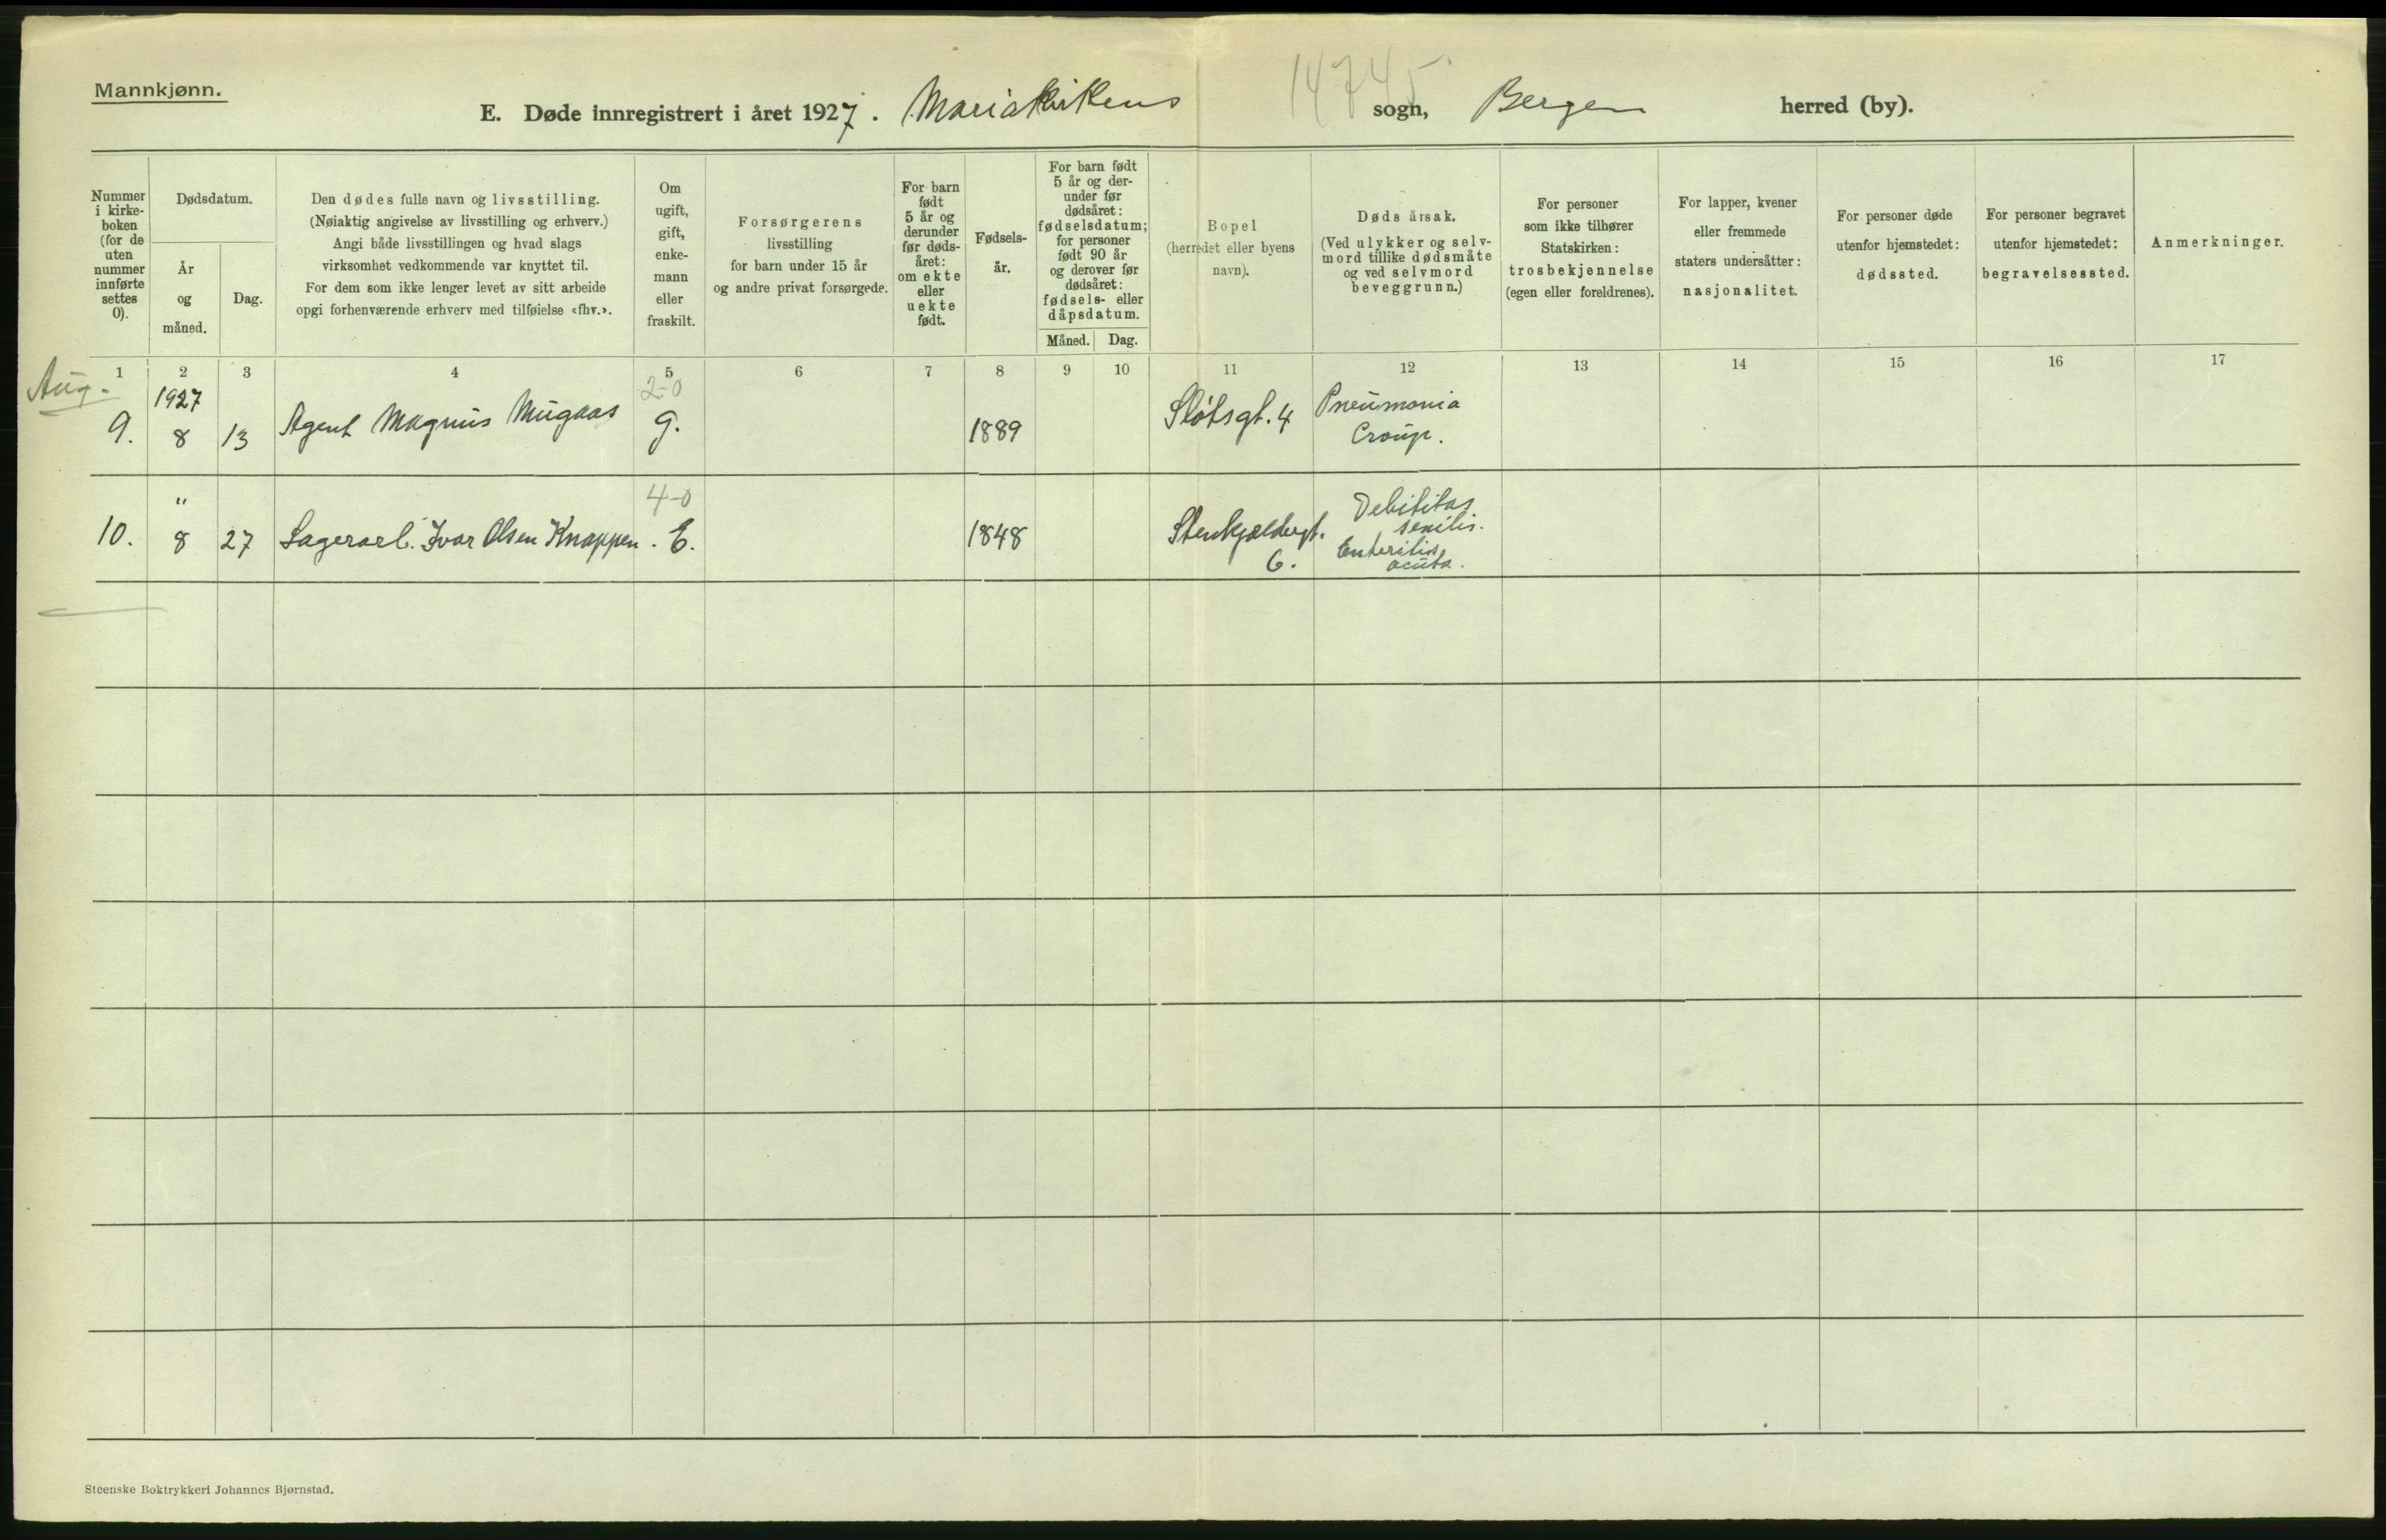 Mannkjønn.
14745
E. Døde innregistrert i året 1927. Mariakirkens sogn, Bergen herred (by).
Nummer
i kirke-
boken
(for de
uten
nummer
innførte
settes
0).
Dødsdatum.
År
og
måned.
Dag.
Den dødes fulle navn og livsstilling.
(Nøiaktig angivelse av livsstilling og erhverv.)
Angi både livsstillingen og hvad slags
virksomhet vedkommende var knyttet til.
For dem som ikke lenger levet av sitt arbeide
opgi forhenværende erhverv med tilføielse «fhv.».
Om
ugift,
gift,
enke-
mann
eller
fraskilt.
Forsørgerens
livsstilling
for barn under 15 år
og andre privat forsørgede.
For barn
født
5 år og
derunder
før døds-
året:
om ekte
eller
uekte
født.
Fødsels-
år.
For barn født
5 år og der-
under før
dødsåret:
fødselsdatum;
for personer
født 90 år
og derover før
dødsåret:
fødsels- eller
dåpsdatum.
Måned. Dag.
Bopel
(herredet eller byens
navn).
Dødsårsak.
(Ved ulykker og selv-
mord tillike dødsmåte
og ved selvmord
beveggrunn.)
For personer
som ikke tilhører
Statskirken:
trosbekjennelse
(egen eller foreldrenes).
For lapper, kvener
eller fremmede
staters undersåtter:
nasjonalitet.
For personer døde
utenfor hjemstedet:
dødssted.
For personer begravet
utenfor hjemstedet:
begravelsessted.
Anmerkninger.
1 2 3 4 5 6 7 8 9 10 11 12 13 14 15 16 17
Aug.
1927
2-0
9. 8 13 Agent Magnus Mugaas g. 1889 Slotsgt. 4 Pneumonia
Croup.
"
4-0
10. 8 27 Lagerarb. Ivar Olsen Knappen. E. 1848 Stenkjældergt.
6.
Debilitas
senilis.
Enteritis
acuta.
Steenske Boktrykkeri Johannes Bjørnstad.